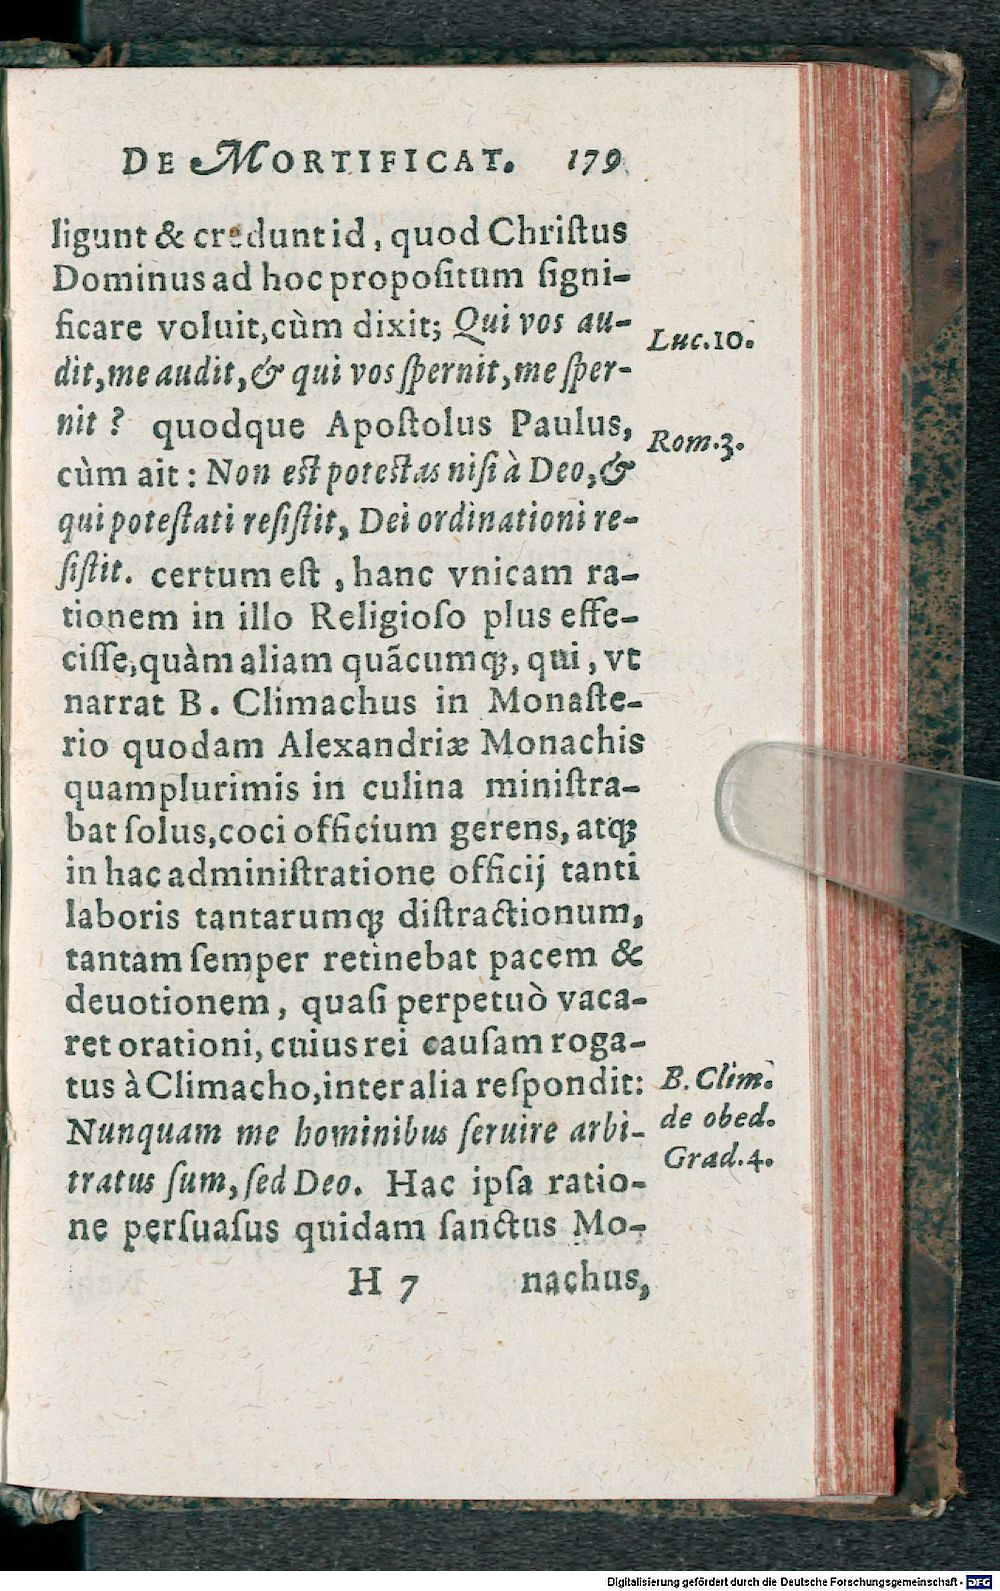 DE MORTIFICAT. 179
ligunt & credunt id, quod Chriſtus
Dominus ad hoc propoſitum ſigni-
ficare voluit, cùm dixit; Qui vos au-
dit, me audit, & qui vos ſpernit, me ſper-
nit? quodque Apoſtolus Paulus,
cùm ait: Non eſt poteſtas niſi à Deo, &
qui poteſtati reſiſtit, Dei ordinationi re-
ſiſtit. certum eſt, hanc vnicam ra-
tionem in illo Religioſo plus effe-
ciſſe, quàm aliam quãcumq;, qui, vt
narrat B. Climachus in Monaſte-
rio quodam Alexandriæ Monachis
quamplurimis in culina miniſtra-
bat ſolus, coci officium gerens, atq;
in hac adminiſtratione officij tanti
laboris tantarumq; diſtractionum,
tantam ſemper retinebat pacem &
deuotionem, quaſi perpetuò vaca-
ret orationi, cuius rei cauſam roga-
tus à Climacho, inter alia reſpondit:
Nunquam me hominibus ſeruire arbi-
tratus ſum, ſed Deo. Hac ipſa ratio-
ne perſuaſus quidam ſanctus Mo-
H 7 nachus,
Luc. 10.
Rom. 3.
B. Clim.
de obed.
Grad. 4.
Digitalisierung gefördert durch die Deutsche Forschungsgemeinschaft - DFG